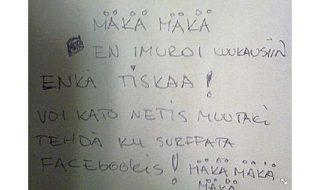 MÄKÄ MÄKÄ
EN IMUROI KUUKAUSIIN
ENKÄ TISKAA!
VOI KATO NETIS MUUTAKI
TEHDÄ KU SURFFATA
FACEBOOKIS! MÄKÄ MÄKÄ
MÄKÄ